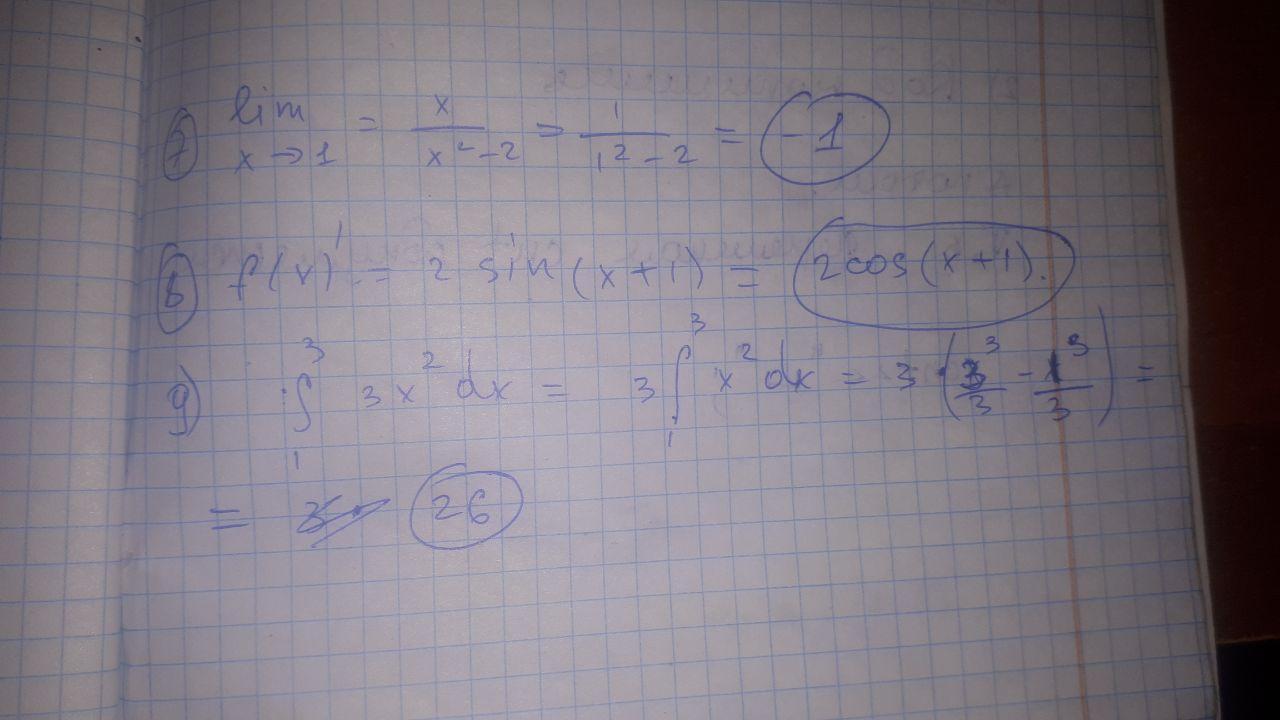 7 lim x→1 = x/(x²-2) = 1/(1²-2) = -1
8 f(x)' = 2 sin(x+1) = 2cos(x+1).
9) ∫₁³ 3x² dx = 3 ∫₁³ x² dx = 3·(3³/3 - 1³/3) =
= 26